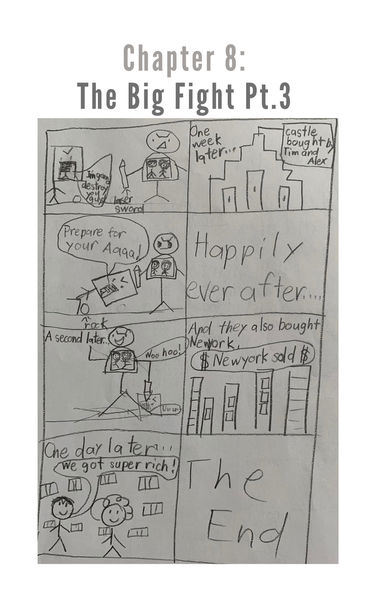 Chapter 8:
The Big Fight Pt.3
destroy
you
guys!
laser
sword
Prepare for
your Aaaa!
rock
A second later...
Woo hoo!
One day later...
We got super rich!
One
week
later...
castle
bought by
Tim and
Alex
Happily
ever after....
And they also bought
Newyork.
$ Newyork sold $
The
End